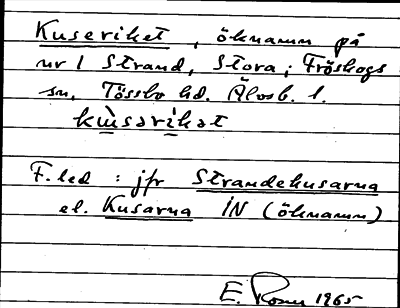 Kuseriket, öknamn på
nr 1 Strand, Stora; Fröskogs
sn, Tössbo hd. Älvsb. l.
kusərikət
F. led : jfr Strandekusarna
el. Kusarna IN (öknamn)
E. 1965